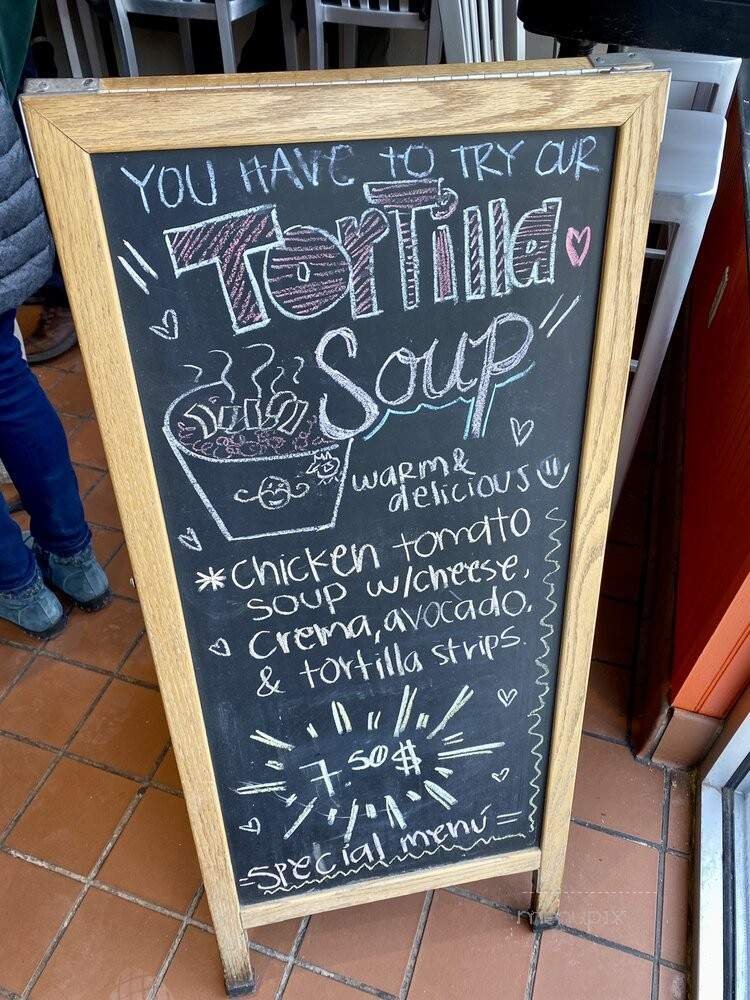 YOU HAVE to TRY OUR
TorTilla
Soup
warm &
delicious
* Chicken tomato
soup w/cheese,
Crema, avocado,
& tortilla strips.
7.50$
-special menú=
menupix